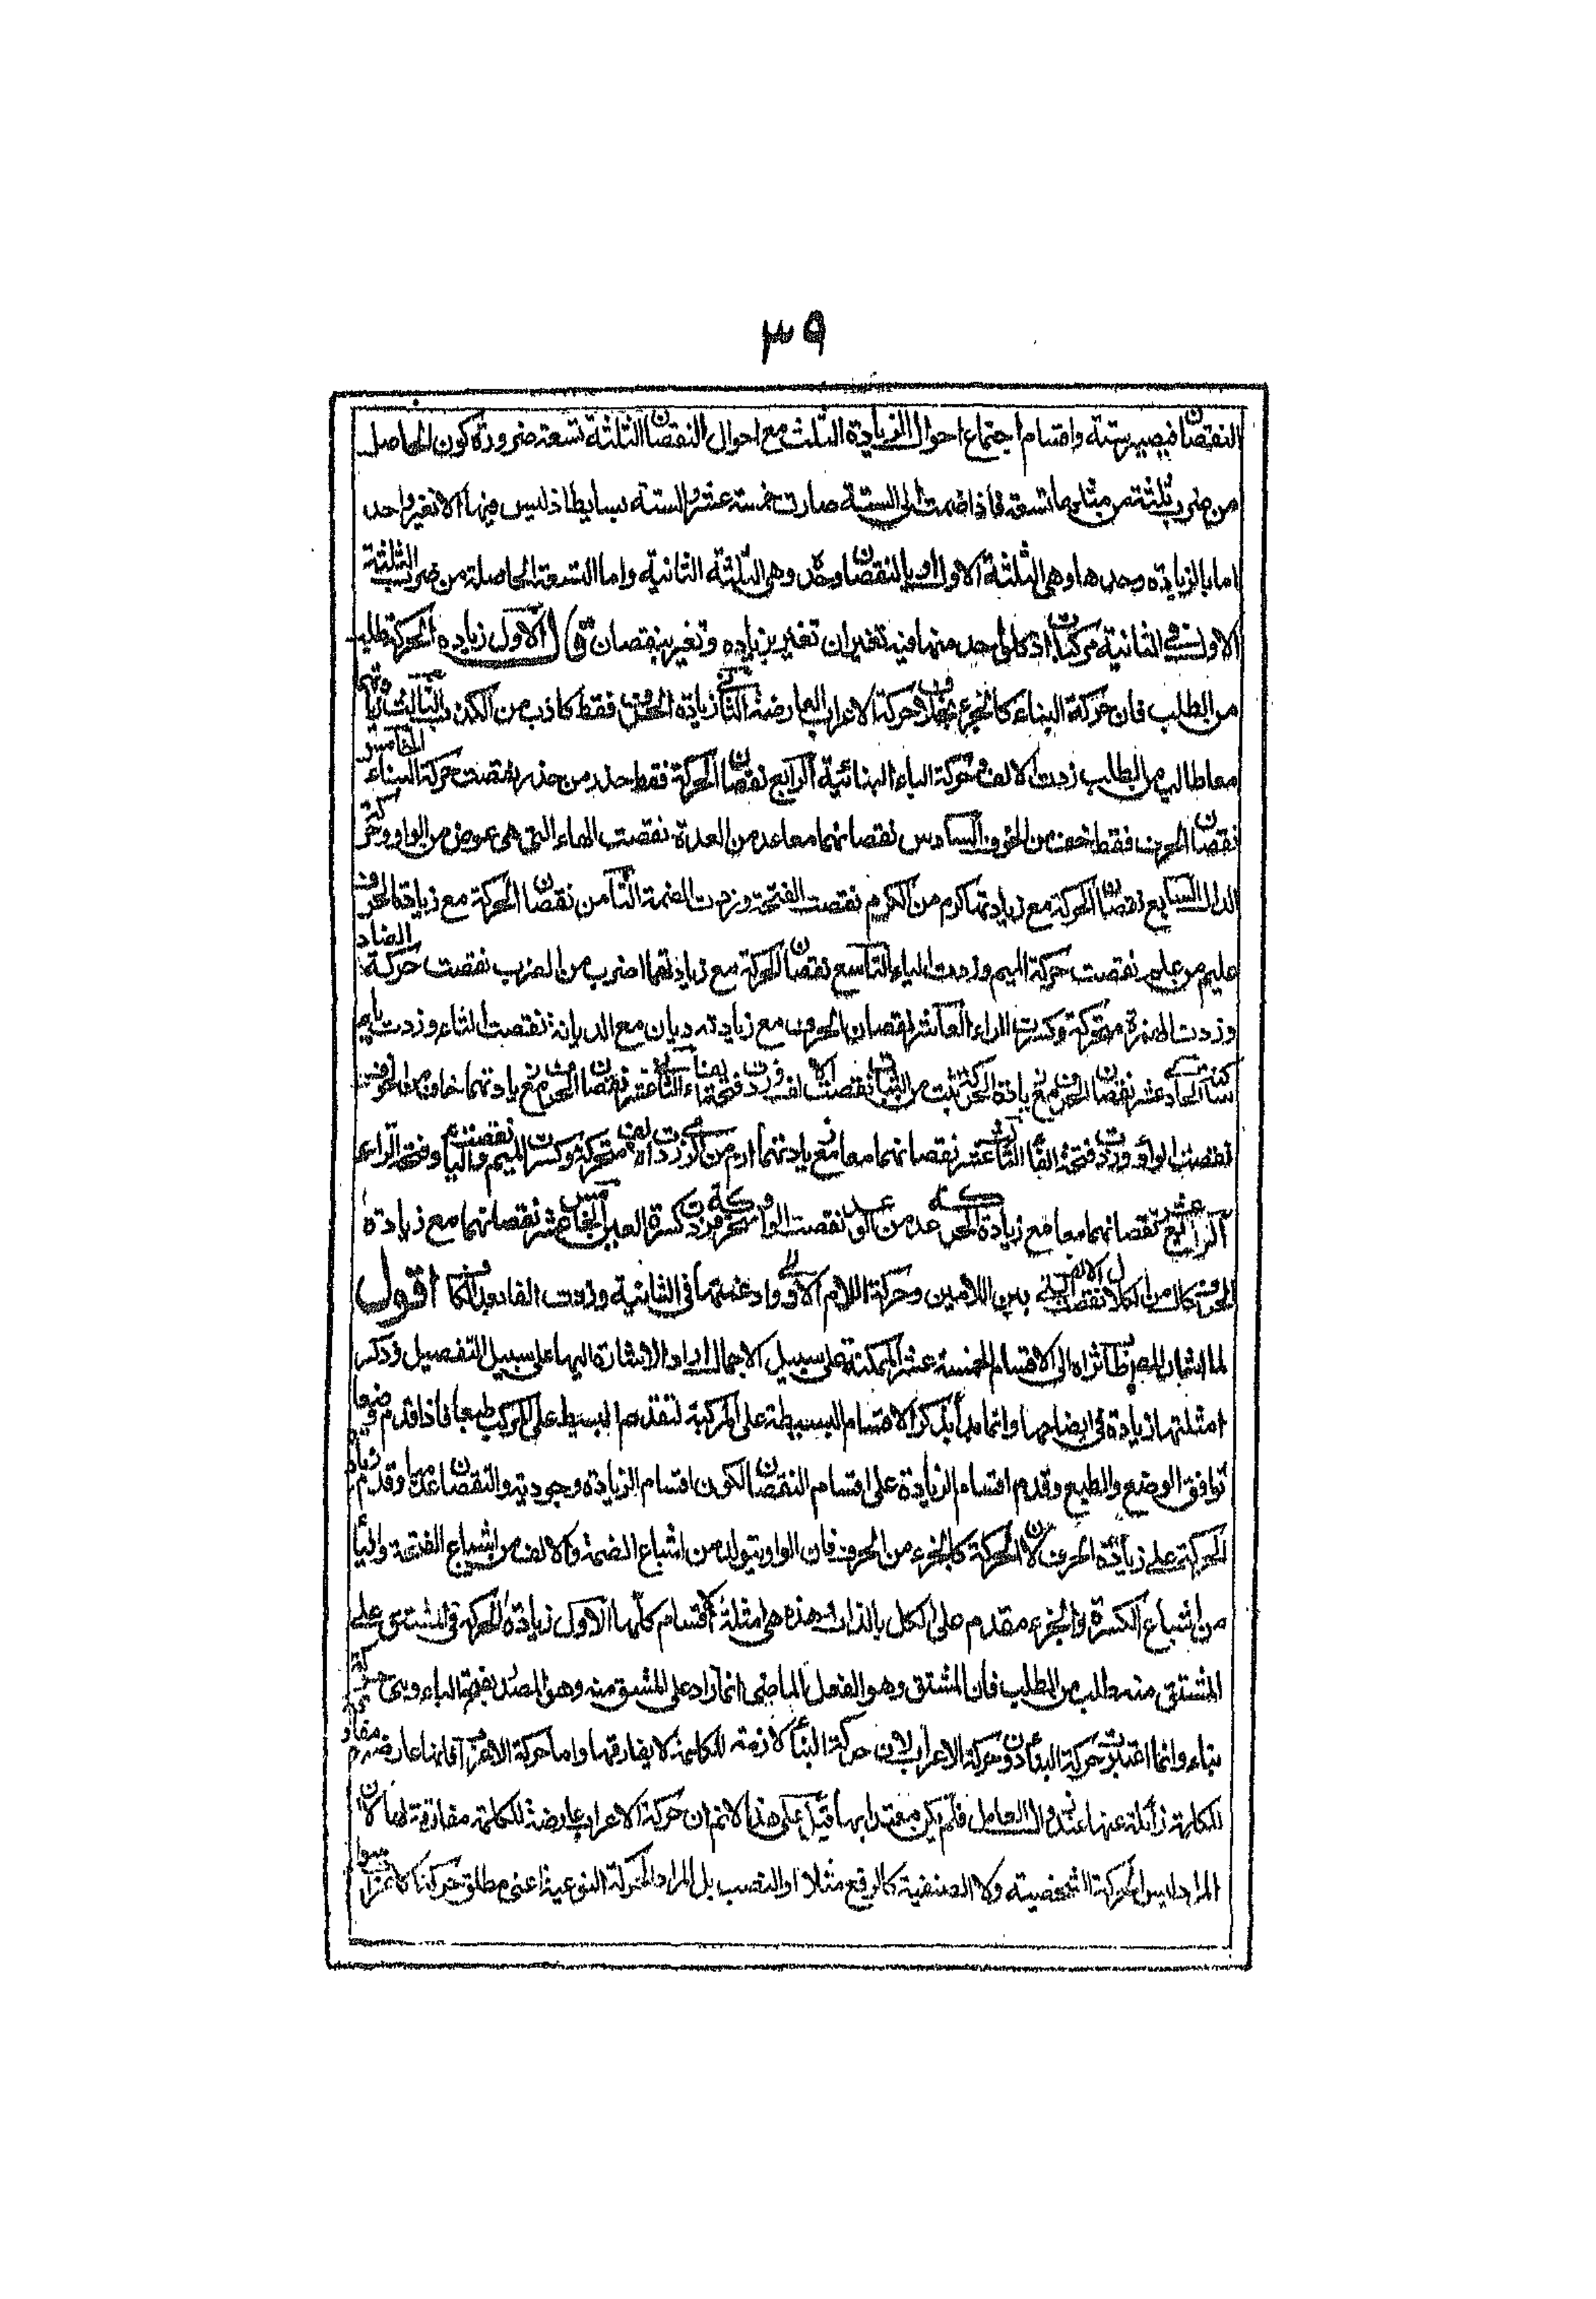 ٣٩
النقصان فيصير ستة واقسام اجتماع احوال الزيادة الثلث مع احوال النقصان الثلثة تسعة ضرورة كون الحاصل
من ضرب ثلثة من مثلها تسعة فاذا ضمت الى الستة صارت خمسة عشر والستة بسايط اذ ليس فيها الا تغير واحد
اما بالزيادة وحدها وهى الثلثة الاول او بالنقصان وحده وهى الثلثة الثانية واما التسعة الحاصلة من ضرب الثلثة
الاول فى الثانية مركبات اذ كل واحد منها فيه تغيران تغير بزيادة وتغير بنقصان ق الاول زيادة الحركة طلب
من الطلب فان حركة البناء كالجزء بخلاف حركة الاعراب العارضة الثانى زيادة الحرف فقط كاذب من الكذب الثالث زيادتهما
معا طالب من الطلب زدت الالف وحركة الباء البنائية الرابع نقصان الحركة فقط حذر من حذر نقصت حركة البناء الخامس
نقصان الحرف فقط خف من الخوف السادس نقصانهما معا عد من العدة نقصت الهاء التى هى عوض من الواو وحركة
الدال السابع نقصان الحركة مع زيادتها كرم من الكرم نقصت الفتحة وزدت الضمة الثامن نقصان الحركة مع زيادة الحرف
عليم من علم نقصت حركة الميم وزدت الياء التاسع نقصان الحركة مع زيادتهما اضرب من الضرب نقصت حركة الضاد
وزدت الهمزة متحركة وكسرت الراء العاشر نقصان الحرف مع زيادته ديان مع الديانة نقصت التاء وزدت ياء
ساكنة الحادى عشر نقصان الحرف مع زيادة الحركة ثبت من الثبات نقصت الالف وزدت فتحة التاء الثانى عشر نقصان الحرف مع زيادتهما خاف من الخوف
نقصت الواو وزدت فتحة الفاء الثالث عشر نقصانهما معا مع زيادتهما ارم من الرمى زدت الهمزة متحركة وكسرت الميم ونقصت الياء وفتحة الراء
الرابع عشر نقصانهما معا مع زيادة الحركة عد من الوعد نقصت الواو متحركة وزدت كسرة العين الخامس عشر نقصانهما مع زيادة
الحرف كال من الكلال نقصت الالف بين اللامين وحركة اللام الاولى وادغمتها فى الثانية وزدت الفا بعد الكاف اقول
لما اشار المصنف طاب ثراه الى الاقسام الخمسة عشر الممكنة على سبيل الاجمال اراد الاشارة اليها على سبيل التفصيل وذكر
امثلتها زيادة فى ايضاحها وانما بدأ بذكر الاقسام البسيطة على المركبة لتقدم البسيط على المركب طبعا فاذا قدم وضعا
توافق الوضع والطبع وقدم اقسام الزيادة على اقسام النقصان لكون اقسام الزيادة وجودية والنقصان عدميا وقدم زيادة
الحركة على زيادة الحرف لان الحركة كالجزء من الحرف فان الواو يتولد من اشباع الضمة والالف من اشباع الفتحة والياء
من اشباع الكسرة والجزء مقدم على الكل بالذات وهذه هى امثلة الاقسام كلها الاول زيادة الحركة فى المشتق على
المشتق منه طلب من الطلب فان المشتق وهو الفعل الماضى انما زاد على المشتق منه وهو المصدر بفتحة الباء وهى حركة
بناء وانما اعتبرت حركة البناء دون حركة الاعراب لان حركة البناء لازمة للكلمة لا يفارقها واما حركة الاعراب فانها عارضة
للكلمة زائلة عنها عند زوال العامل فلم يكن معتدا بها قيل على هذا لا نم ان حركة الاعراب عارضة للكلمة مفارقة لها لان
المراد ليس الحركة الشخصية ولا الصنفية كالرفع مثلا او النصب بل المراد الحركة النوعية اعنى مطلق حركة الاعراب سواء